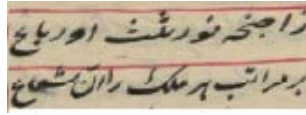 زاجنحه نور ثلث او رباع
بر مراتب هر ملک را آن شعاع